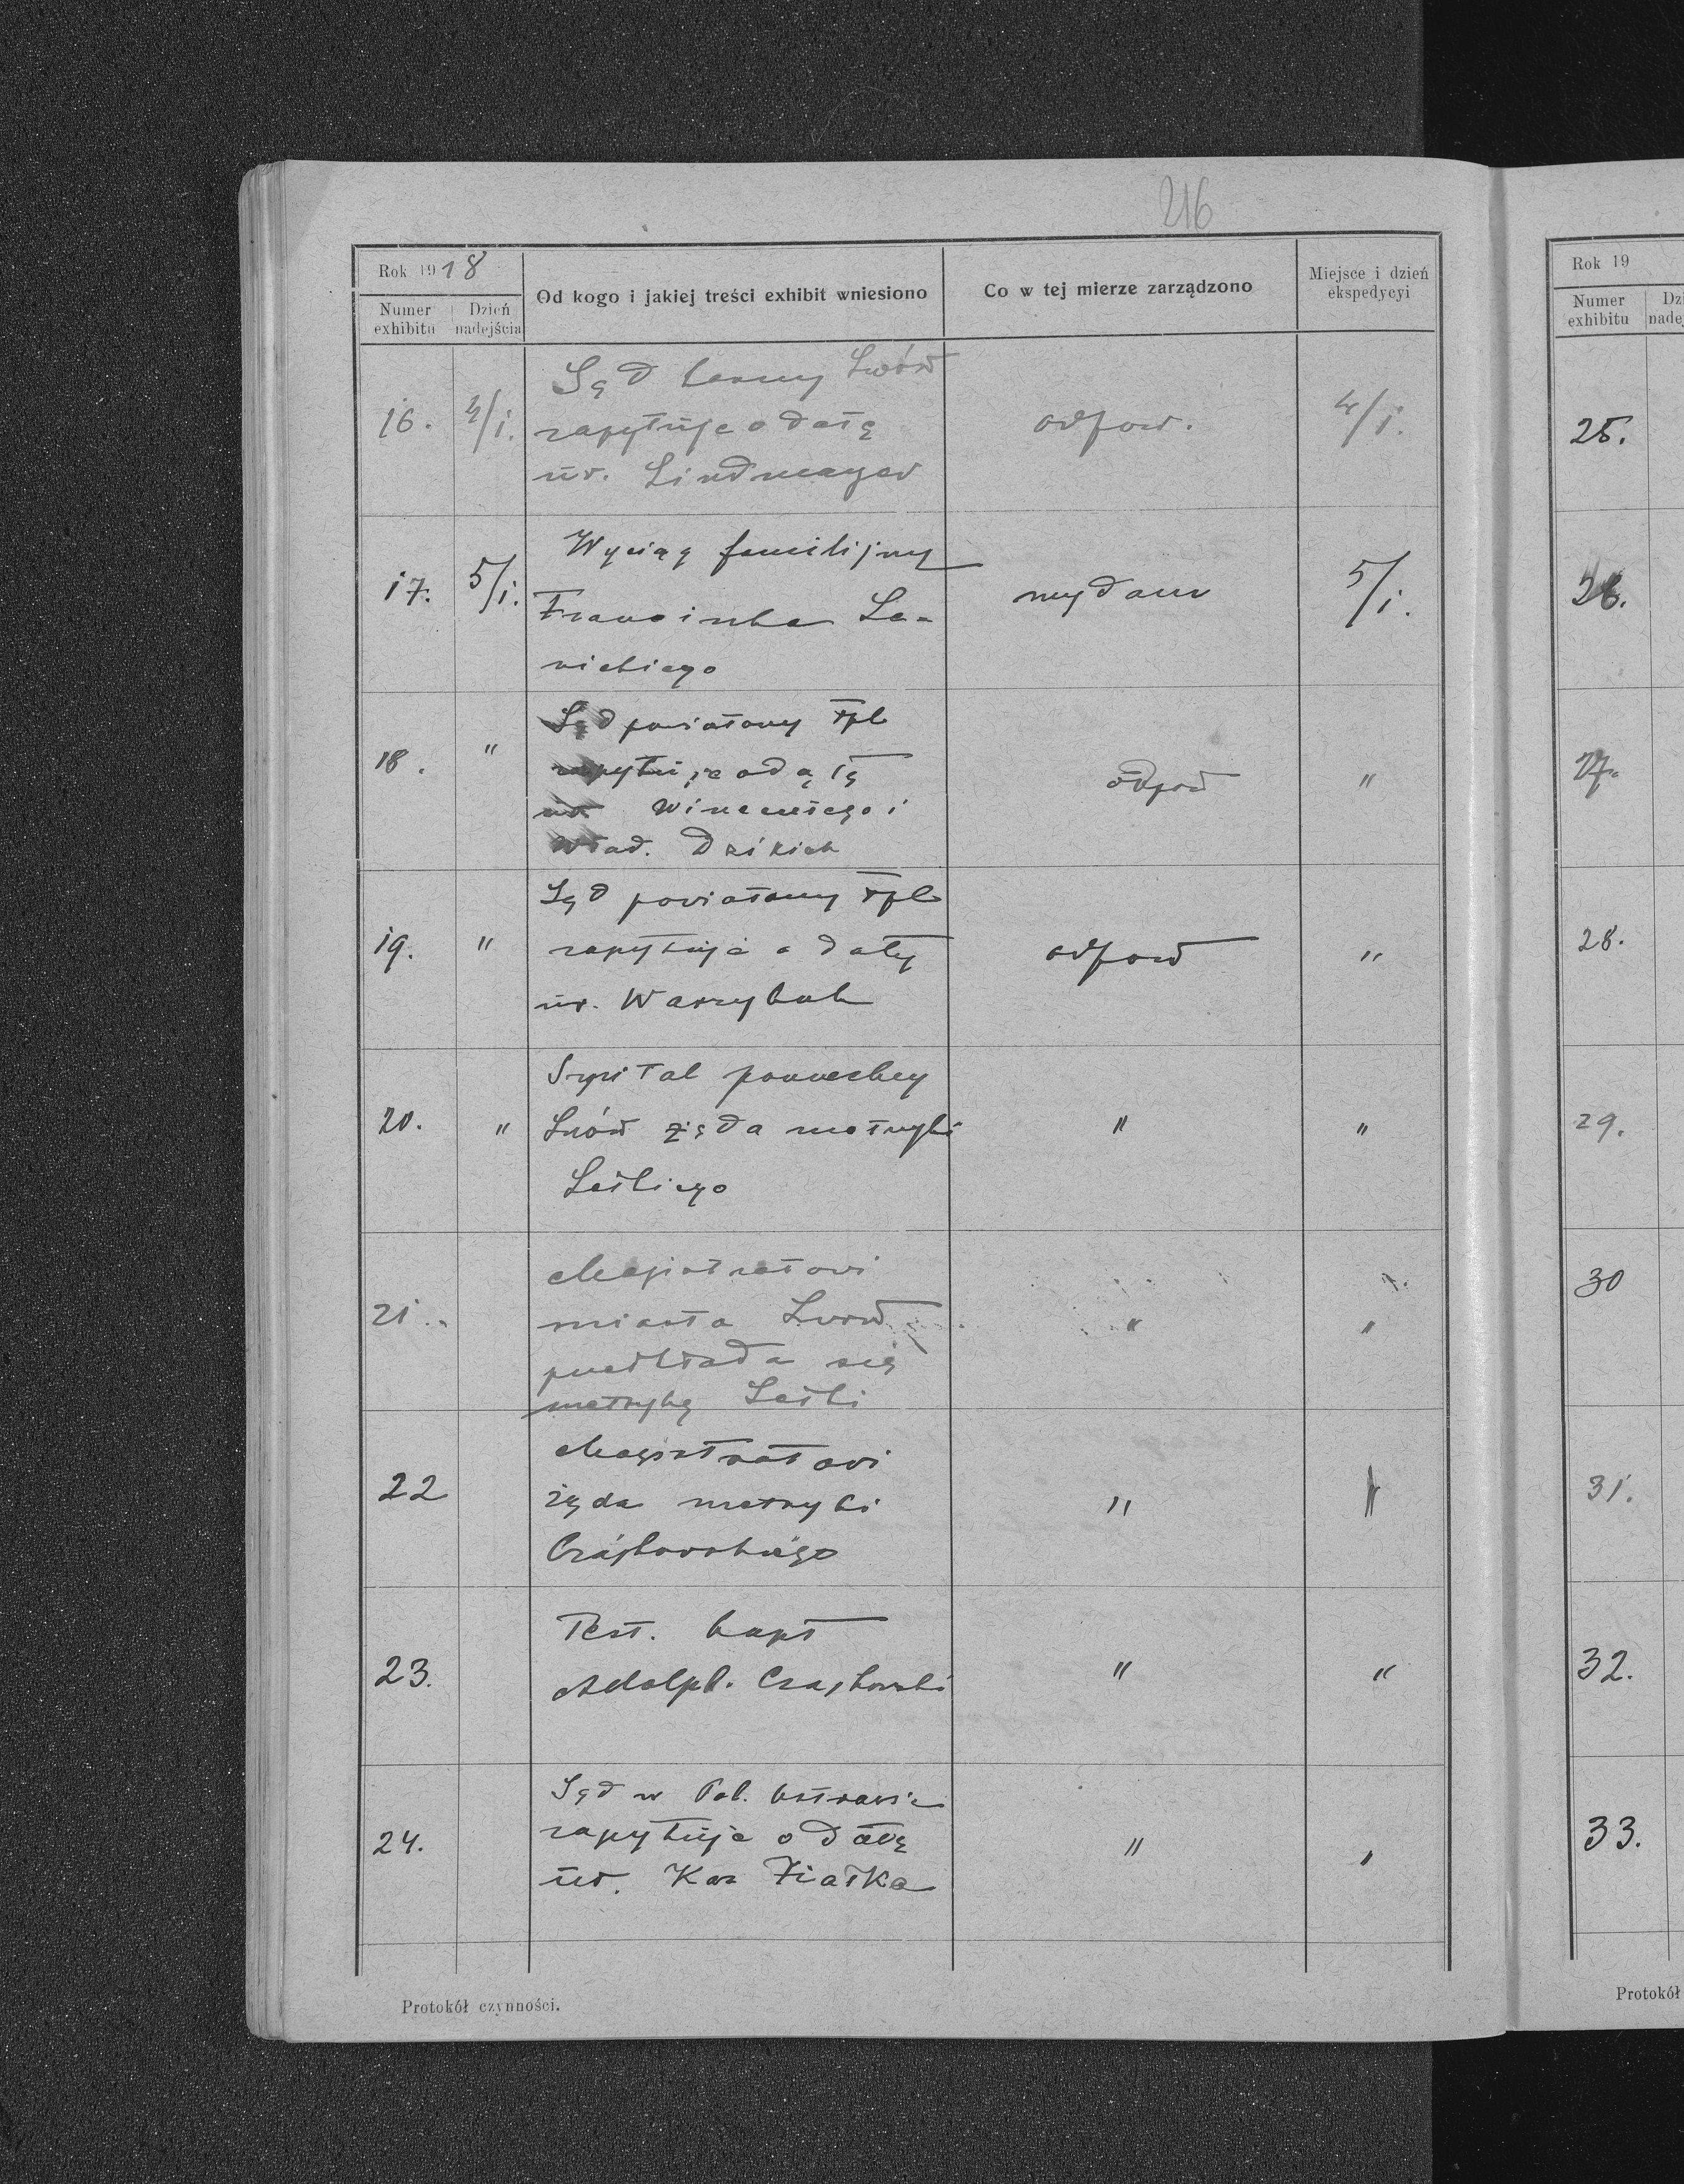 216
Rok 1918
Numer exhibitu
Dzień nadejścia
Od kogo i jakiej treści exhibit wniesiono
Co w tej mierze zarządzono
Miejsce i dzień ekspedycyi
16. 4/1. Sąd karny Lwów odpow. 4/1.
zapytuje o datę
ur. Lindmayer
17. 5/1. Wyciąg familijny wydano 5/1.
Franciszka
18. " Sąd powiatowy Tpl odpow "
zapytuje o datę
ur. Wincentego i
Wład. Dzikich
19. " Sąd powiatowy Tpl odpow "
zapytuje o daty
ur. Warzybuk
20. " Szpital powszechny " "
Lwów żąda metryki
Leśkiego
21. Magistratowi " "
miasta Lwów
przedkłada się
metrykę Leśki
22 Magistratowi " "
żąda metryki
Czajkowskiego
23. Test. bapt " "
Adolph. Czajkowski
24. Sąd w Pol. Ostrawie " "
zapytuje o datę
ur. Kaz Ziatka
Protokół czynności.
Rok 19
Numer exhibitu
25.
26.
27.
28.
29.
30
31.
32.
33.
Protokół